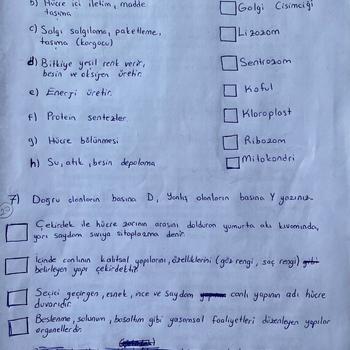 b) Hücre içi iletim, madde
taşıma
Golgi Cisimciği
c) Salgı salgılama, paketleme,
taşıma (kargocu)
Lizozom
d) Bitkiye yeşil renk verir,
besin ve oksijen üretir.
Sentrozom
e) Enerji üretir.
Koful
f) Protein sentezler.
Kloroplast
g) Hücre bölünmesi
Ribozom
h) Su, atık, besin depolama
Mitokondri
7) Doğru olanların başına D, Yanlış olanların başına Y yazınız.
Çekirdek ile hücre zarının arasını dolduran yumurta akı kıvamında,
yarı saydam sıvıya sitoplazma denir.
İçinde canlının kalıtsal yapılarını, özelliklerini (göz rengi, saç rengi)
belirleyen yapı çekirdektir.
Seçici geçirgen, esnek, ince ve saydam canlı yapının adı hücre
duvarıdır.
Beslenme, solunum, boşaltım gibi yaşamsal faaliyetleri düzenleyen yapılar
organellerdir.